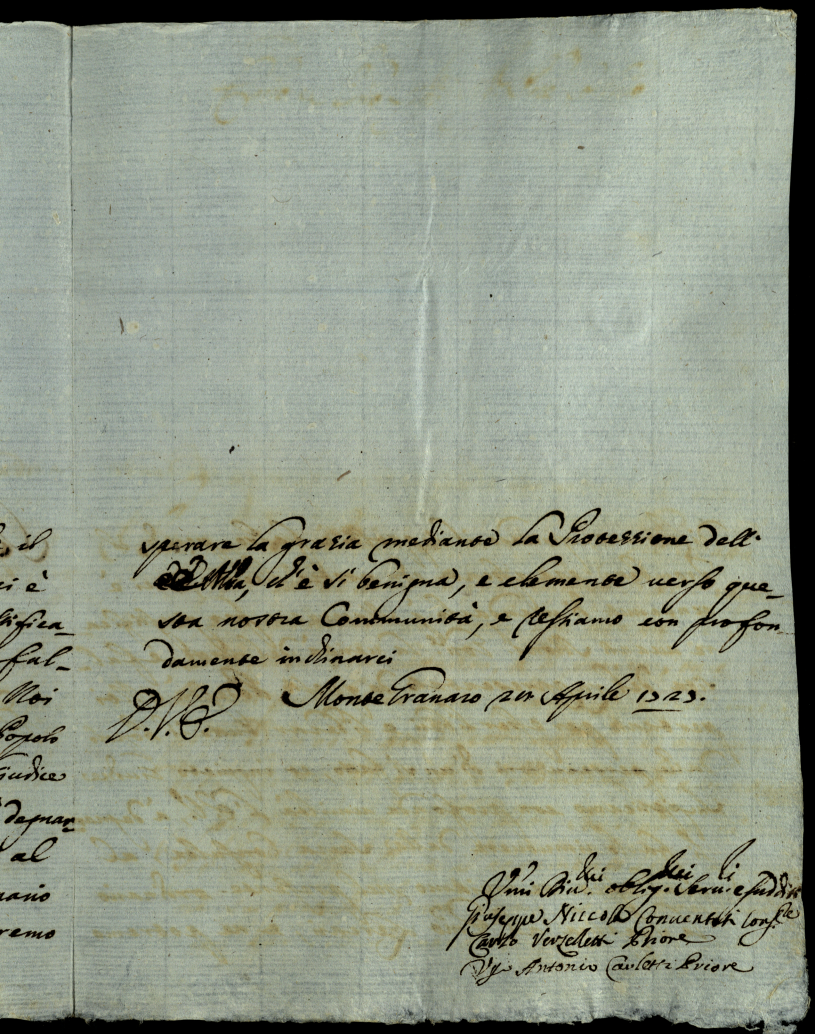 il
ci è
tifica-
fal-
Noi
Popolo
Giudice
degnar-
al
nario
remo
sperare la grazia mediante la Protezzione dell'
ch'è sì benigna, e clemente verso que-
sta nostra Communità, e restiamo con profon-
damente inclinarci
D.V.E. Monte Granaro Aprile 1723.
Umi Div. oblig. Serv. e sudditi
Giuseppe Niccolò Conventati
Verzelletti Priore
Antonio Carletti Priore